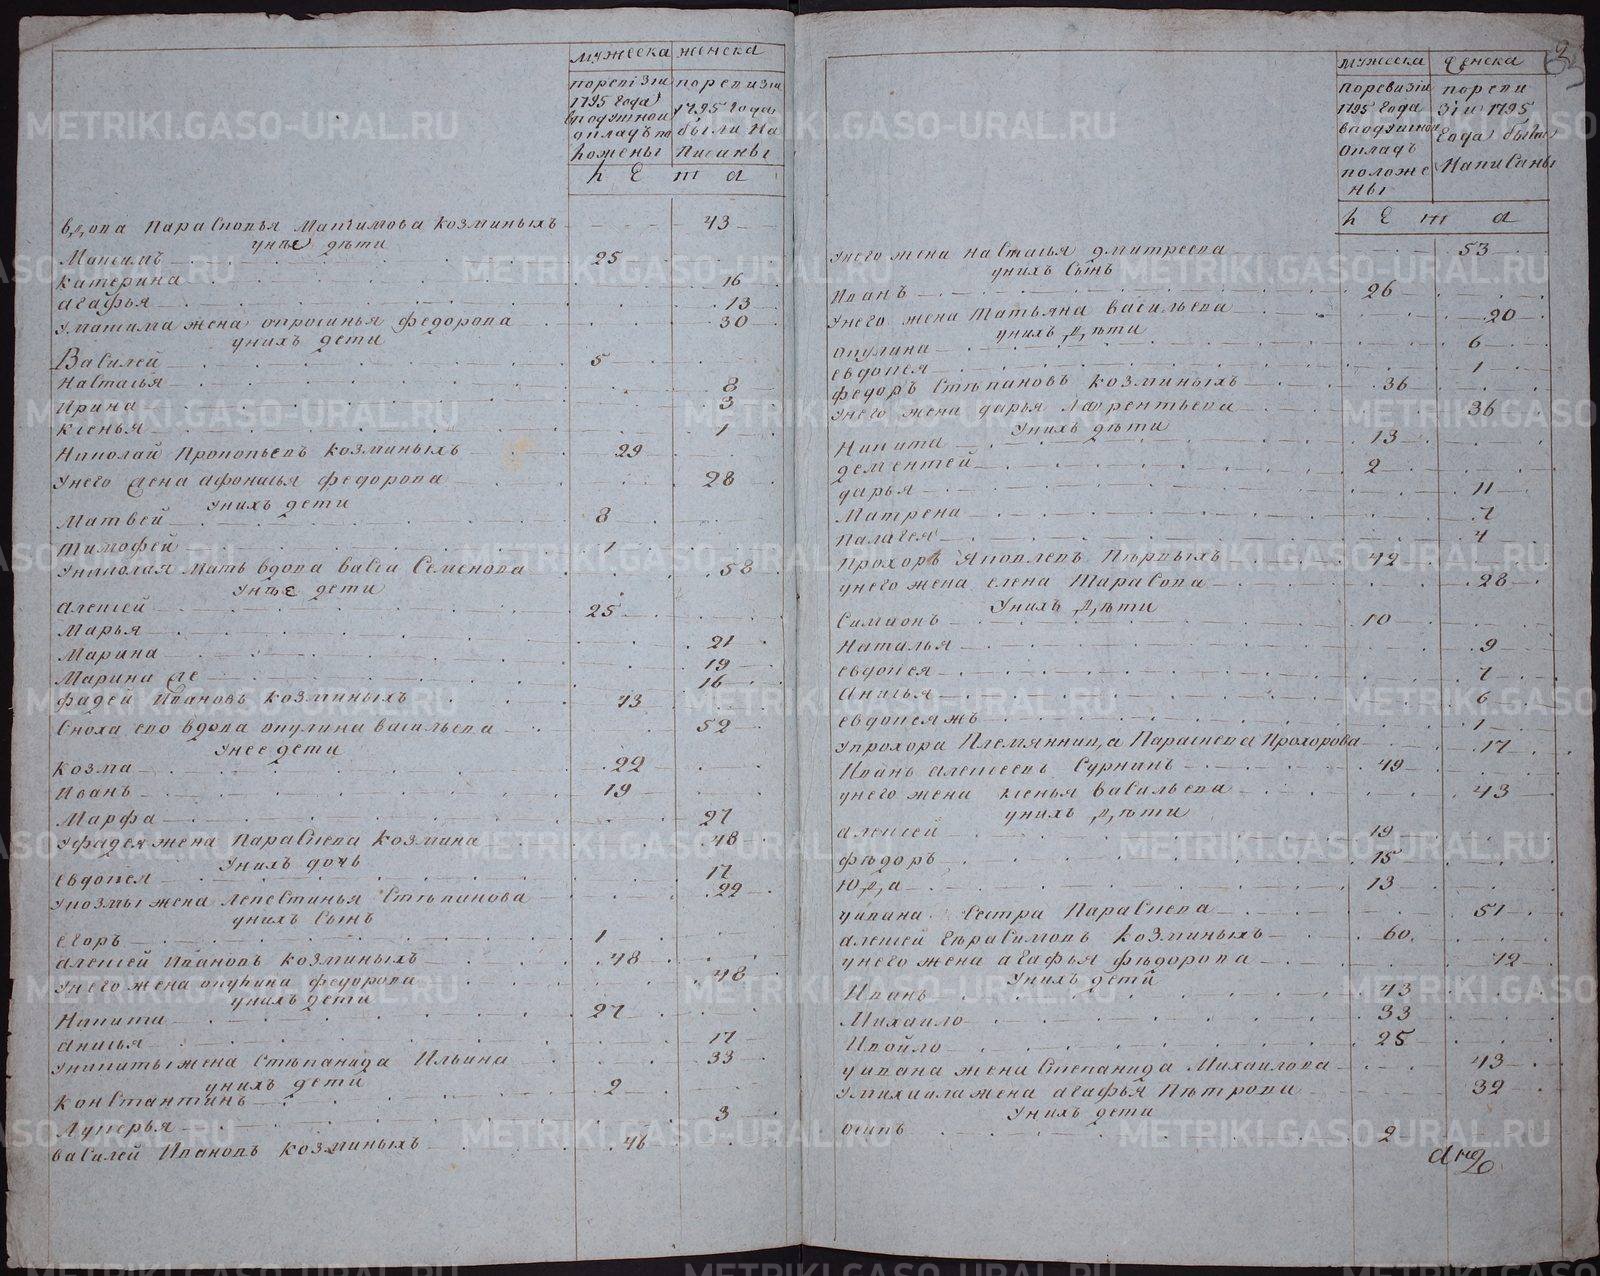 мужеска женска
поревізіи поревизіи
1795 года 1795 года
вподушной были на
окладъ по писаны
ложены
л е т а
вдова Парасковья Маѯимова Козминыхъ 43
унѣе дѣти
Максимъ 25
катерина 16
агафья 13
умаѯима жена опросинья федорова 30
унихъ дети
Василей 5
настасья 8
Ирина 3
ксенья 1
Николай Прокопьевъ козминыхъ 29
унего жена афонасья федорова 28
унихъ дети
Матвей 8
тимофей 1
униколая мать вдова васса Семенова 58
Унѣе дети
алексей 25
Марья 21
Марина 19
Марина же 16
фадей Ивановъ козминыхъ 43
Сноха ево вдова окулина васильева 52
Унее дети
козма 22
Иванъ 19
Марфа 27
уфадея жена Параскева Козмина 48
Унихъ дочь
евдокея 17
укозмы жена Левестинья Степанова 22
унихъ сынъ
егоръ 1
алексей Ивановъ козминыхъ 48
унего жена окулина федорова 48
унихъ дети
Никита 27
анисья 17
уникиты жена Степанида Ильина 33
унихъ дети
константинъ 2
Лукерья 3
василей Ивановъ козминыхъ 46
мужеска женска
поревизіи пореви
1795 года зіи 1795
вподушной года были
окладъ написаны
положе
ны
л е т а
унего жена настасья дмитреева 53
унихъ сынъ
Иванъ 26
Унего жена Татьяна васильева 20
унихъ дѣти
окулина 6
евдокея 1
федоръ Степановъ козминыхъ 36
унего жена дарья Лаврентьева 36
Унихъ дѣти
Никита 13
дементей 2
дарья 11
Матрена 7
палагея 4
Прохоръ Яковлевъ Первыхъ 42
унего жена елена Тарасова 28
Унихъ дѣти
Симионъ 10
Наталья 9
евдокея 7
Анисья 6
евдокеяжъ 1
упрохора Племянница Параскева Прохорова 17
Иванъ алексеевъ Сурнинъ 49
унего жена ксенья васильева 43
унихъ дѣти
алексей 19
Фѣдоръ 15
Юда 13
уивана Сестра Параскева 51
алексей Герасимовъ козминыхъ 60
унего жена агафья фѣдорова
Унихъ дети
Иванъ 43
Михаило 33
Ивойло 25
уивана жена Степанида Михаилова 43
умихаила жена агафья Пѣтрова 32
Унихъ дети
осипъ 2